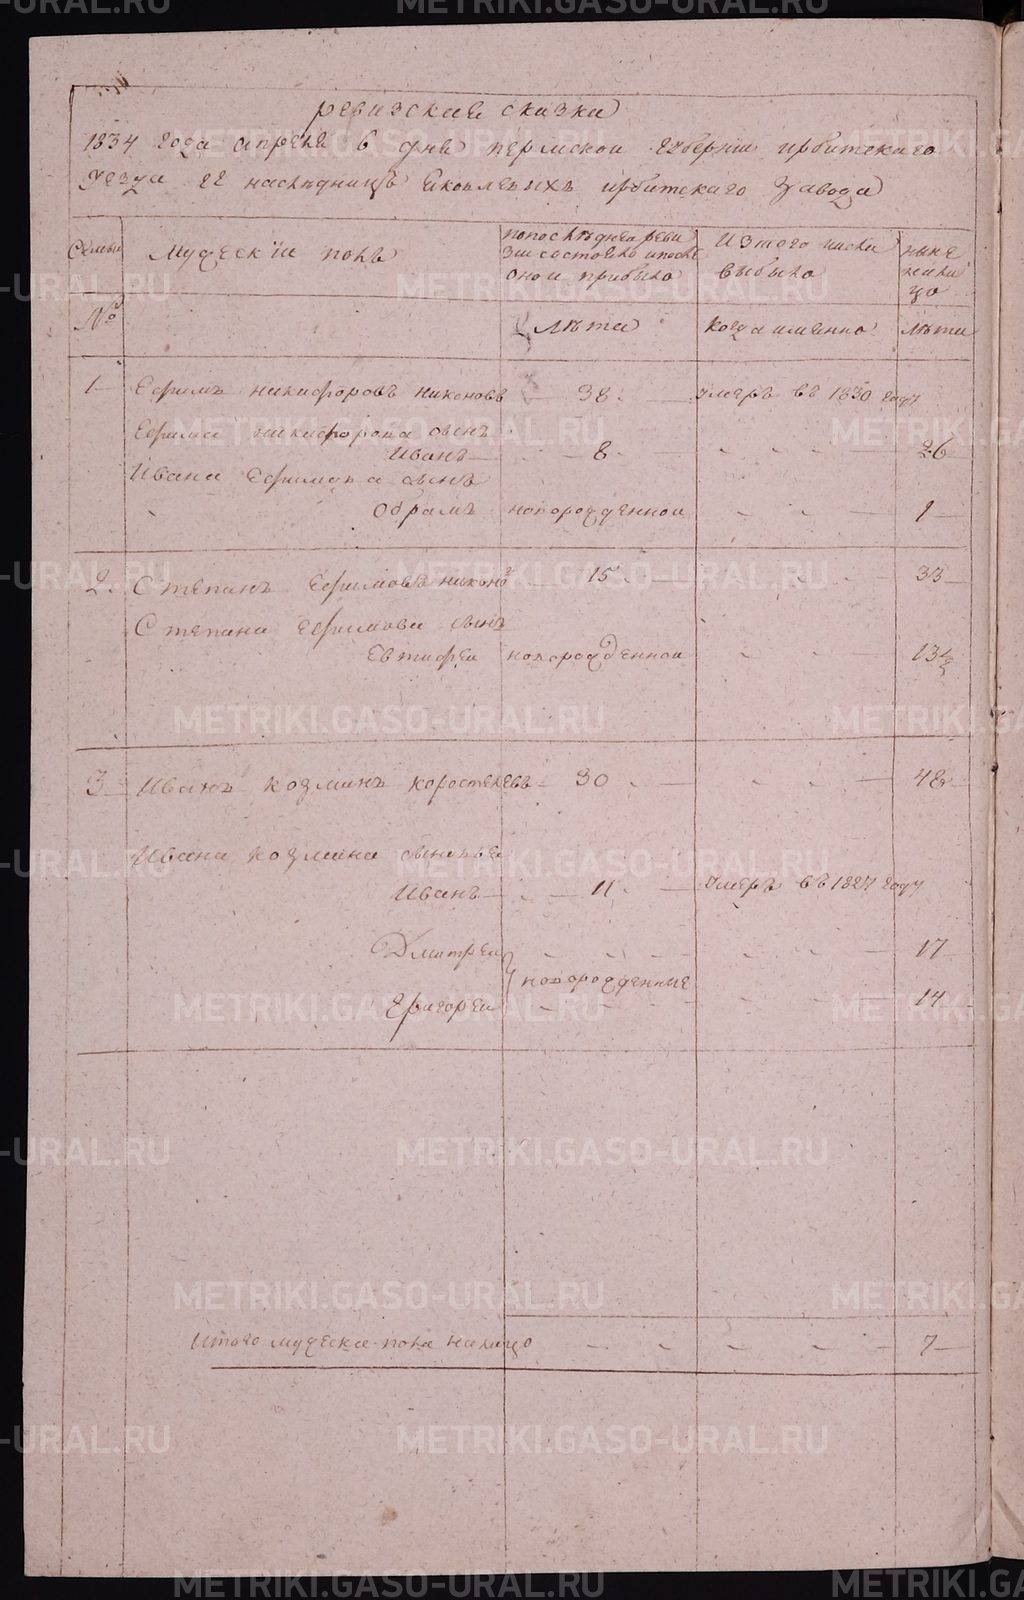 ревизские сказки
1834 года апреля 6 дня пермской губернии ирбитскаго
уезда гг наследницъ Яковлевыхъ ирбитскаго завода
Семьи
Мужескiй полъ
по последней реви
зии состояло и после
оной прибыло
Изтого числа
выбыло
ныне
нали
цо
№
Лѣта
когда именно
Лѣта
1 Ефимъ никифоровъ никоновъ 38 умеръ въ 1830 году
Ефима никифорова сынъ
Иванъ 8 26
Ивана Ефимова сынъ
Обрамъ новорожденной 1
2 Степанъ Ефимовъ никоновъ 15 33
Степана Ефимова сынъ
Евтифей новорожденной 13½
3 Иванъ козминъ коростелевъ 30 48
Ивана козмина сыновья
Иванъ 11 умеръ въ 1827 году
Дмитрей 17
новорожденные
Григорей 14
Итого мужеска пола налицо 7
METRIKI.GASO-URAL.RU